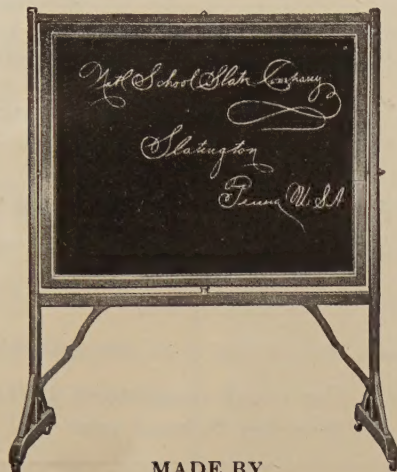 Natl School Slate Company
Slatington
Penna U.S.A
MADE BY